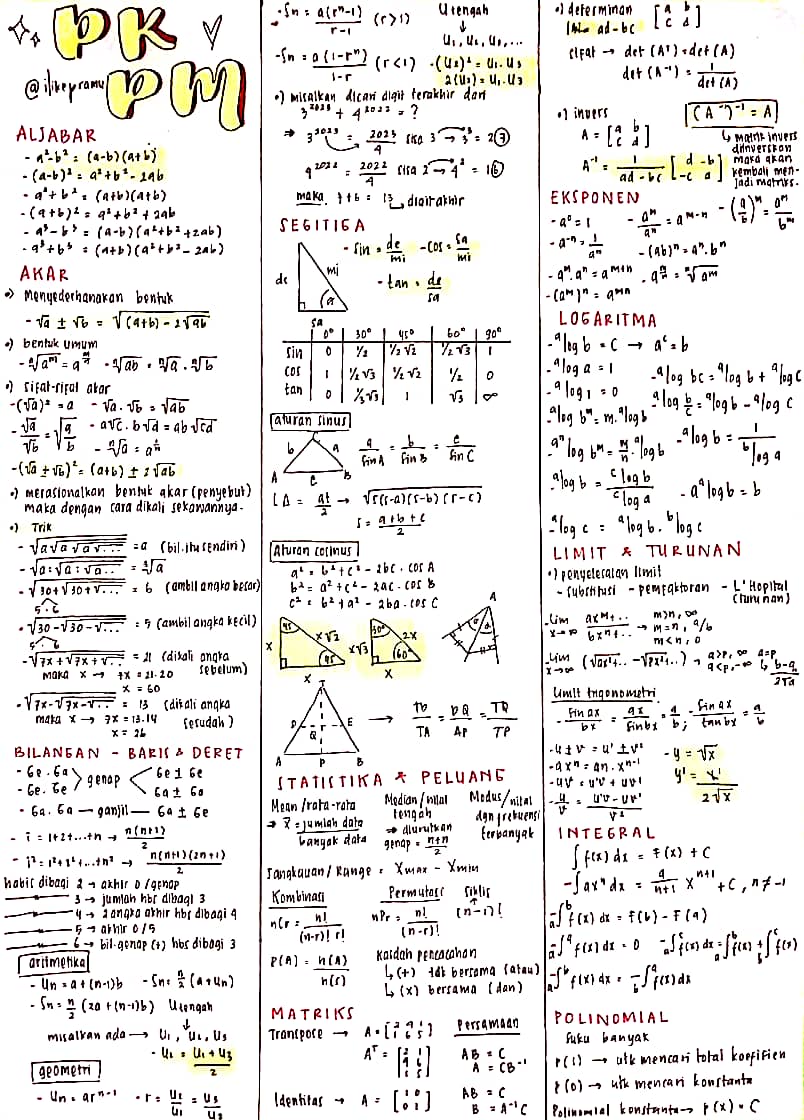 PK
PM
@ilikepramu
ALJABAR
- a²-b² = (a-b)(a+b)
- (a-b)² = a²+b²-2ab
- a²+b² = (a+b)(a+b)
- (a+b)² = a²+b²+2ab
- a³-b³ = (a-b)(a²+b²+2ab)
- a³+b³ = (a+b)(a²+b²-2ab)
AKAR
•) Menyederhanakan bentuk
- √a ± √b = √(a+b)-2√ab
•) bentuk umum
- ⁿ√aᵐ = a^(m/n) - ⁿ√ab = ⁿ√a . ⁿ√b
•) Sifat-sifat akar
- (√a)² = a - √a . √b = √ab
- √a/√b = √(a/b) - a√c . b√d = ab√cd
- ⁿ√a = a^(1/n)
- (√a ± √b)² = (a+b) ± 2√ab
•) merasionalkan bentuk akar (penyebut)
maka dengan cara dikali sekawannya.
•) Trik
- √a√a√a√... = a (bil. itu sendiri)
- √a:√a:√a.. = ³√a
- √30+√30+√... = 6 (ambil angka besar)
5 . 6
- √30-√30-√... = 5 (ambil angka kecil)
5 . 6
- √7x+√7x+√.. = 21 (dikali angka
maka x → 7x = 21.20 sebelum)
x = 60
- √7x-√7x-√.. = 13 (dikali angka
maka x → 7x = 13.14 sesudah)
x = 26
BILANGAN - BARIS & DERET
- Ge . Ga > genap < Ge ± Ge
- Ge . Ge Ga ± Ga
- Ga . Ga — ganjil — Ga ± Ge
- i = 1+2+...+n → n(n+1)/2
- i² = 1²+2²+...+n² → n(n+1)(2n+1)/2
habis dibagi 2 → akhir 0/genap
3 → jumlah hbs dibagi 3
4 → 2 angka akhir hbs dibagi 4
5 → akhir 0/5
6 → bil.genap (+) hbs dibagi 3
aritmetika
- Un = a+(n-1)b - Sn = n/2 (a+Un)
- Sn = n/2 (2a+(n-1)b) Utengah
misalkan ada → U₁, U₂, U₃
- U₂ = U₁+U₃/2
geometri
- Un = arⁿ⁻¹ - r = U₂/U₁ = U₃/U₂
- Sn = a(rⁿ-1)/r-1 (r>1) Utengah
U₁, U₂, U₃, ...
- Sn = a(1-rⁿ)/1-r (r<1) - (U₂)² = U₁.U₃
2(U₂) = U₁.U₃
•) misalkan dicari digit terakhir dari
3²⁰²³ + 4²⁰²² = ?
⇒ 3²⁰²³ = 2023/4 sisa 3 → 3³ = 27
4²⁰²² = 2022/4 sisa 2 → 4² = 16
maka 7+6 = 13 digit akhir
SEGITIGA
- sin = de/mi - cos = sa/mi
de mi - tan = de/sa
α
sa
0° 30° 45° 60° 90°
sin 0 ½ ½√2 ½√3 1
cos 1 ½√3 ½√2 ½ 0
tan 0 ⅓√3 1 √3 ∞
aturan sinus
b a
A c B
a/sin A = b/sin B = c/sin C
L∆ = at/2 → √s(s-a)(s-b)(s-c)
s = a+b+c/2
Aturan cosinus
a² = b²+c²-2bc . cos A
b² = a²+c²-2ac . cos B
c² = b²+a²-2ba . cos C
45 x√2 x 45 x
30° 2x x√3 60° x
A
T
D E
Q
A P B
→ TD/TA = DQ/AP = TQ/TP
STATISTIKA & PELUANG
Mean/rata-rata
⇒ x̄ = jumlah data/banyak data
Median/nilai
tengah
⇒ diurutkan
genap = n+n/2
Modus/nilai
dgn frekuensi
terbanyak
Jangkauan/Range = Xmax - Xmin
Kombinasi Permutasi Siklis
nCr = n!/(n-r)! r! nPr = n!/(n-r)! (n-1)!
P(A) = n(A)/n(S)
Kaidah pencacahan
↳ (+) tdk bersama (atau)
↳ (x) bersama (dan)
MATRIKS
Transpose → A = [2 4 1 / 1 6 5] Persamaan
Aᵀ = [2 1 / 4 6 / 1 5] AB = C
A = CB⁻¹
Identitas → A = [1 0 / 0 1] AB = C
B = A⁻¹C
•) determinan [a b / c d]
|A| = ad-bc
sifat → det (Aᵀ) = det (A)
det (A⁻¹) = 1/det (A)
•) invers (A⁻¹)⁻¹ = A
A = [a b / c d]
↳ matrik invers
diinverskan
maka akan
kembali men-
jadi matriks.
A⁻¹ = 1/ad-bc [d -b / -c a]
EKSPONEN
- a⁰ = 1 - aᵐ/aⁿ = aᵐ⁻ⁿ - (a/b)ᵐ = aᵐ/bᵐ
- a⁻ⁿ = 1/aⁿ - (ab)ⁿ = aⁿ.bⁿ
- aᵐ.aⁿ = aᵐ⁺ⁿ - a^(m/n) = ⁿ√aᵐ
- (aᵐ)ⁿ = aᵐⁿ
LOGARITMA
- ᵃlog b = c → aᶜ = b
- ᵃlog a = 1 - ᵃlog bc = ᵃlog b + ᵃlog c
- ᵃlog 1 = 0 - ᵃlog b/c = ᵃlog b - ᵃlog c
- ᵃlog bᵐ = m.ᵃlog b
- ᵃⁿlog bᵐ = m/n . ᵃlog b - ᵃlog b = 1/ᵇlog a
- ᵃlog b = ᶜlog b/ᶜlog a - a^ᵃlog b = b
- ᵃlog c = ᵃlog b . ᵇlog c
LIMIT & TURUNAN
•) penyelesaian limit
- substitusi - pemfaktoran - L'Hopital
(turunan)
- Lim x→∞ axᵐ+../bxⁿ+.. → m>n, ∞
m=n, a/b
m<n, 0
- Lim x→∞ (√ax²+.. - √px²+..) → a>p, ∞ a=p
a<p, -∞ ↳ b-q/2√a
Limit trigonometri
- sin ax/bx = ax/sin bx = a/b ; - sin ax/tan bx = a/b
- u±v = u'±v' - y = √x
- axⁿ = an.xⁿ⁻¹ y' = x'/2√x
- uv = u'v+uv'
- u/v = u'v-uv'/v²
INTEGRAL
∫ f(x) dx = F(x) + C
- ∫axⁿ dx = a/n+1 xⁿ⁺¹ + C, n ≠ -1
- ₐ∫ᵇ f(x) dx = F(b) - F(a)
- ₐ∫ᵃ f(x) dx = 0 - ₐ∫ᶜ f(x) dx = ₐ∫ᵇ f(x) + ᵇ∫ᶜ f(x)
- ₐ∫ᵇ f(x) dx = - ᵇ∫ᵃ f(x) dx
POLINOMIAL
suku banyak
P(1) → utk mencari total koefisien
P(0) → utk mencari konstanta
Polinomial konstanta → P(x) = C